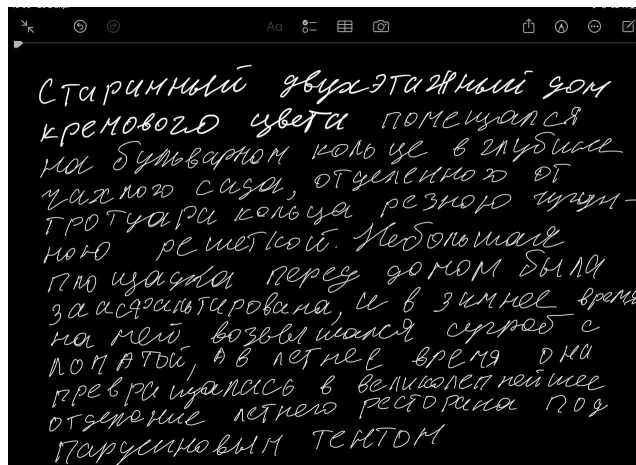 Aa
Старинный двухэтажный дом
кремового цвета помещался
на бульварном кольце в глубине
чахлого сада, отделенного от
тротуара кольца резною чугун-
ною решеткой. Небольшая
площадка перед домом была
заасфальтирована, и в зимнее время
на ней возвышался сугроб с
лопатой, а в летнее время она
превращалась в великолепнейшее
отделение летнего ресторана под
парусиновым тентом